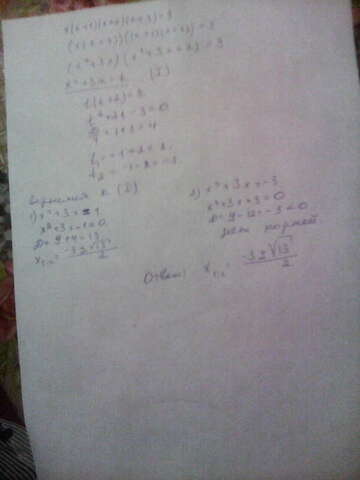 x(x+1)(x+2)(x+3)=3
(x(x+3))((x+1)(x+2))=3
(x²+3x)(x²+3x+2)=3
x²+3x=t (1)
t(t+2)=3
t²+2t-3=0
D/4=1+3=4
t₁=-1+2=1
t₂=-1-2=-3
Вернемся к (1)
1) x²+3x=1
x²+3x-1=0
D=9+4=13
x₁,₂=(-3±√13)/2
2) x²+3x=-3
x²+3x+3=0
D=9-12=-3<0
нет корней
Ответ: x₁,₂=(-3±√13)/2